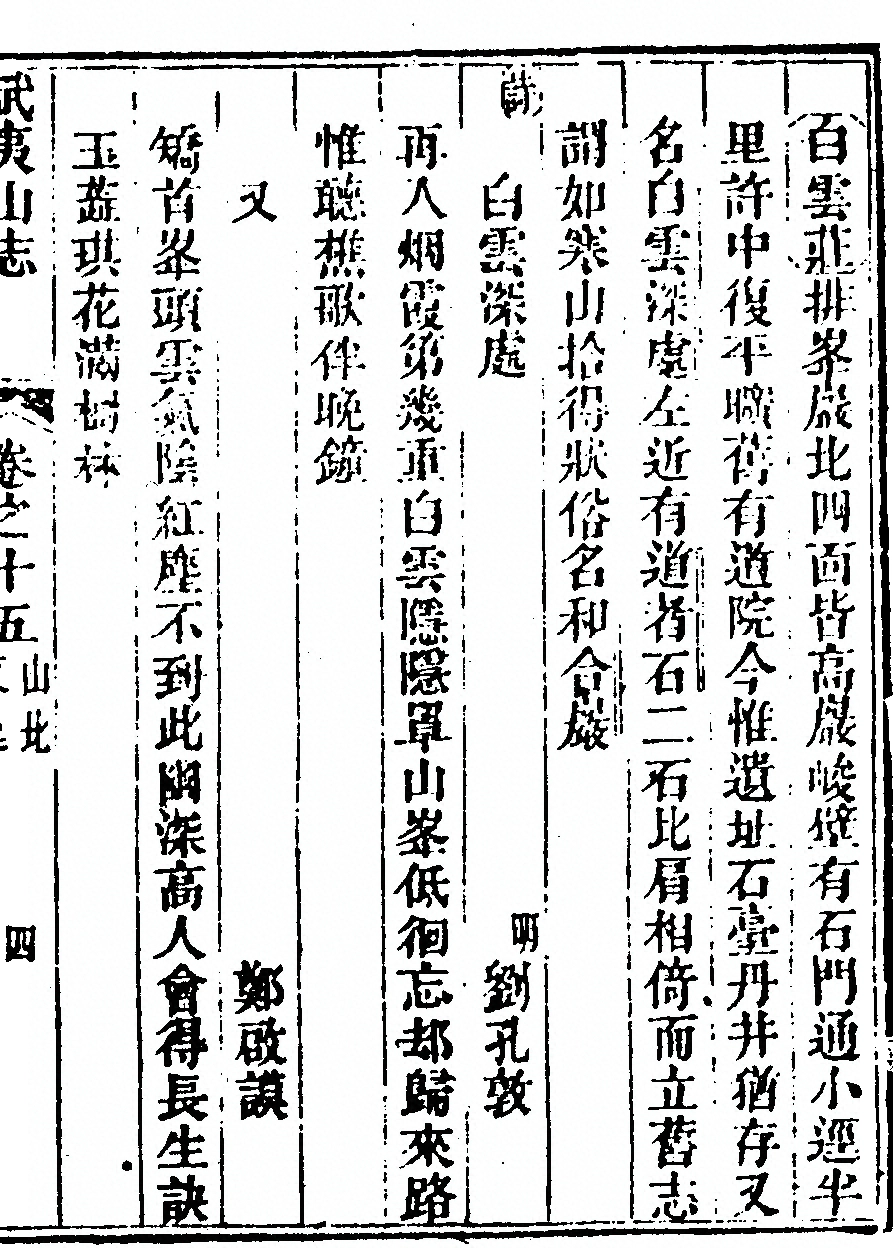 白雲莊排峯巖北四面皆高巖峻壁有石門通小逕半
里許中復平曠舊有道院今惟遺址石臺丹井猶存又
名白雲深處左近有道者石二石比肩相倚而立舊志
謂如寒山拾得狀俗名和合巖
詩
白雲深處 明劉孔敦
再入烟霞第幾重白雲隱隱罩山峯低徊忘却歸來路
惟聽樵歌伴晚鐘
又 鄭啟謨
矯首峯頭雲氣陰紅塵不到此幽深高人會得長生訣
玉蕋琪花滿樹林
武夷山志 卷之十五 山北 四